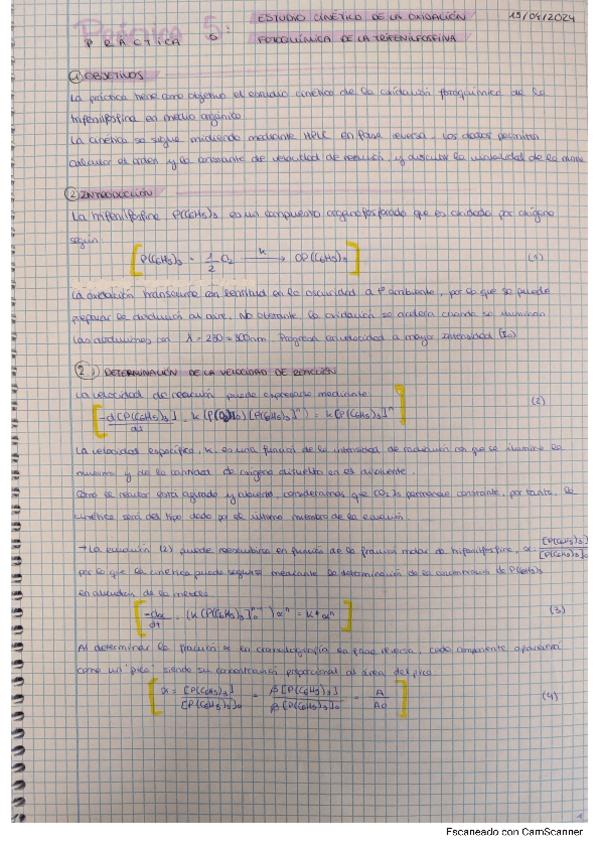 Práctica 5:
PRÁCTICA 5
ESTUDIO CINÉTICO DE LA OXIDACIÓN
15/04/2024
FOTOQUÍMICA DE LA TRIFENILFOSFINA
① OBJETIVOS
La práctica tiene como objetivo el estudio cinético de la oxidación fotoquímica de la
trifenilfosfina en medio orgánico.
La cinética se sigue midiendo mediante HPLC en fase reversa. Los datos permiten
calcular el orden y la constante de velocidad de reacción, y discutir la de la
② INTRODUCCIÓN
La trifenilfosfina P(C6H5)3 es un compuesto organofosforado que es oxidado por oxígeno
según:
P(C6H5)3 - 1/2 O2 —k→ OP(C6H5)3 (1)
La oxidación transcurre con lentitud en la oscuridad a Tª ambiente, por lo que se puede
preparar la disolución al aire. No obstante, la oxidación se acelera cuando se iluminan
las disoluciones con λ = 250 - 300nm. Progresa en velocidad a mayor intensidad (I0)
② ) DETERMINACIÓN DE LA VELOCIDAD DE REACCIÓN
La velocidad de reacción puede expresarse mediante:
-d[P(C6H5)3]/dt = k [P(C6H5)3]^n = k[P(C6H5)3]^n (2)
La velocidad específica, k, es una función de la intensidad de radiación con que se ilumine la
muestra y de la cantidad de oxígeno disuelto en el disolvente.
Como el reactor está agitado y abierto, consideramos que [O2]s permanece constante, por tanto, la
cinética será del tipo dado por el último miembro de la ecuación.
→ La ecuación (2) puede reescribirse en función de la fracción molar de trifenilfosfina, α = [P(C6H5)3]/[P(C6H5)3]0
por lo que la cinética puede seguirse mediante la determinación de la concentración de P(C6H5)3
en alícuotas de la mezcla.
-dα/dt = (k[P(C6H5)3]0^n-1) α^n = k* α^n (3)
Al determinar la fracción α en cromatografía en fase reversa, cada componente aparecerá
como un "pico" siendo su concentración proporcional al área del pico.
α = [P(C6H5)3]/[P(C6H5)3]0 = β[P(C6H5)3]/β[P(C6H5)3]0 = A/A0 (4)
1
Escaneado con CamScanner